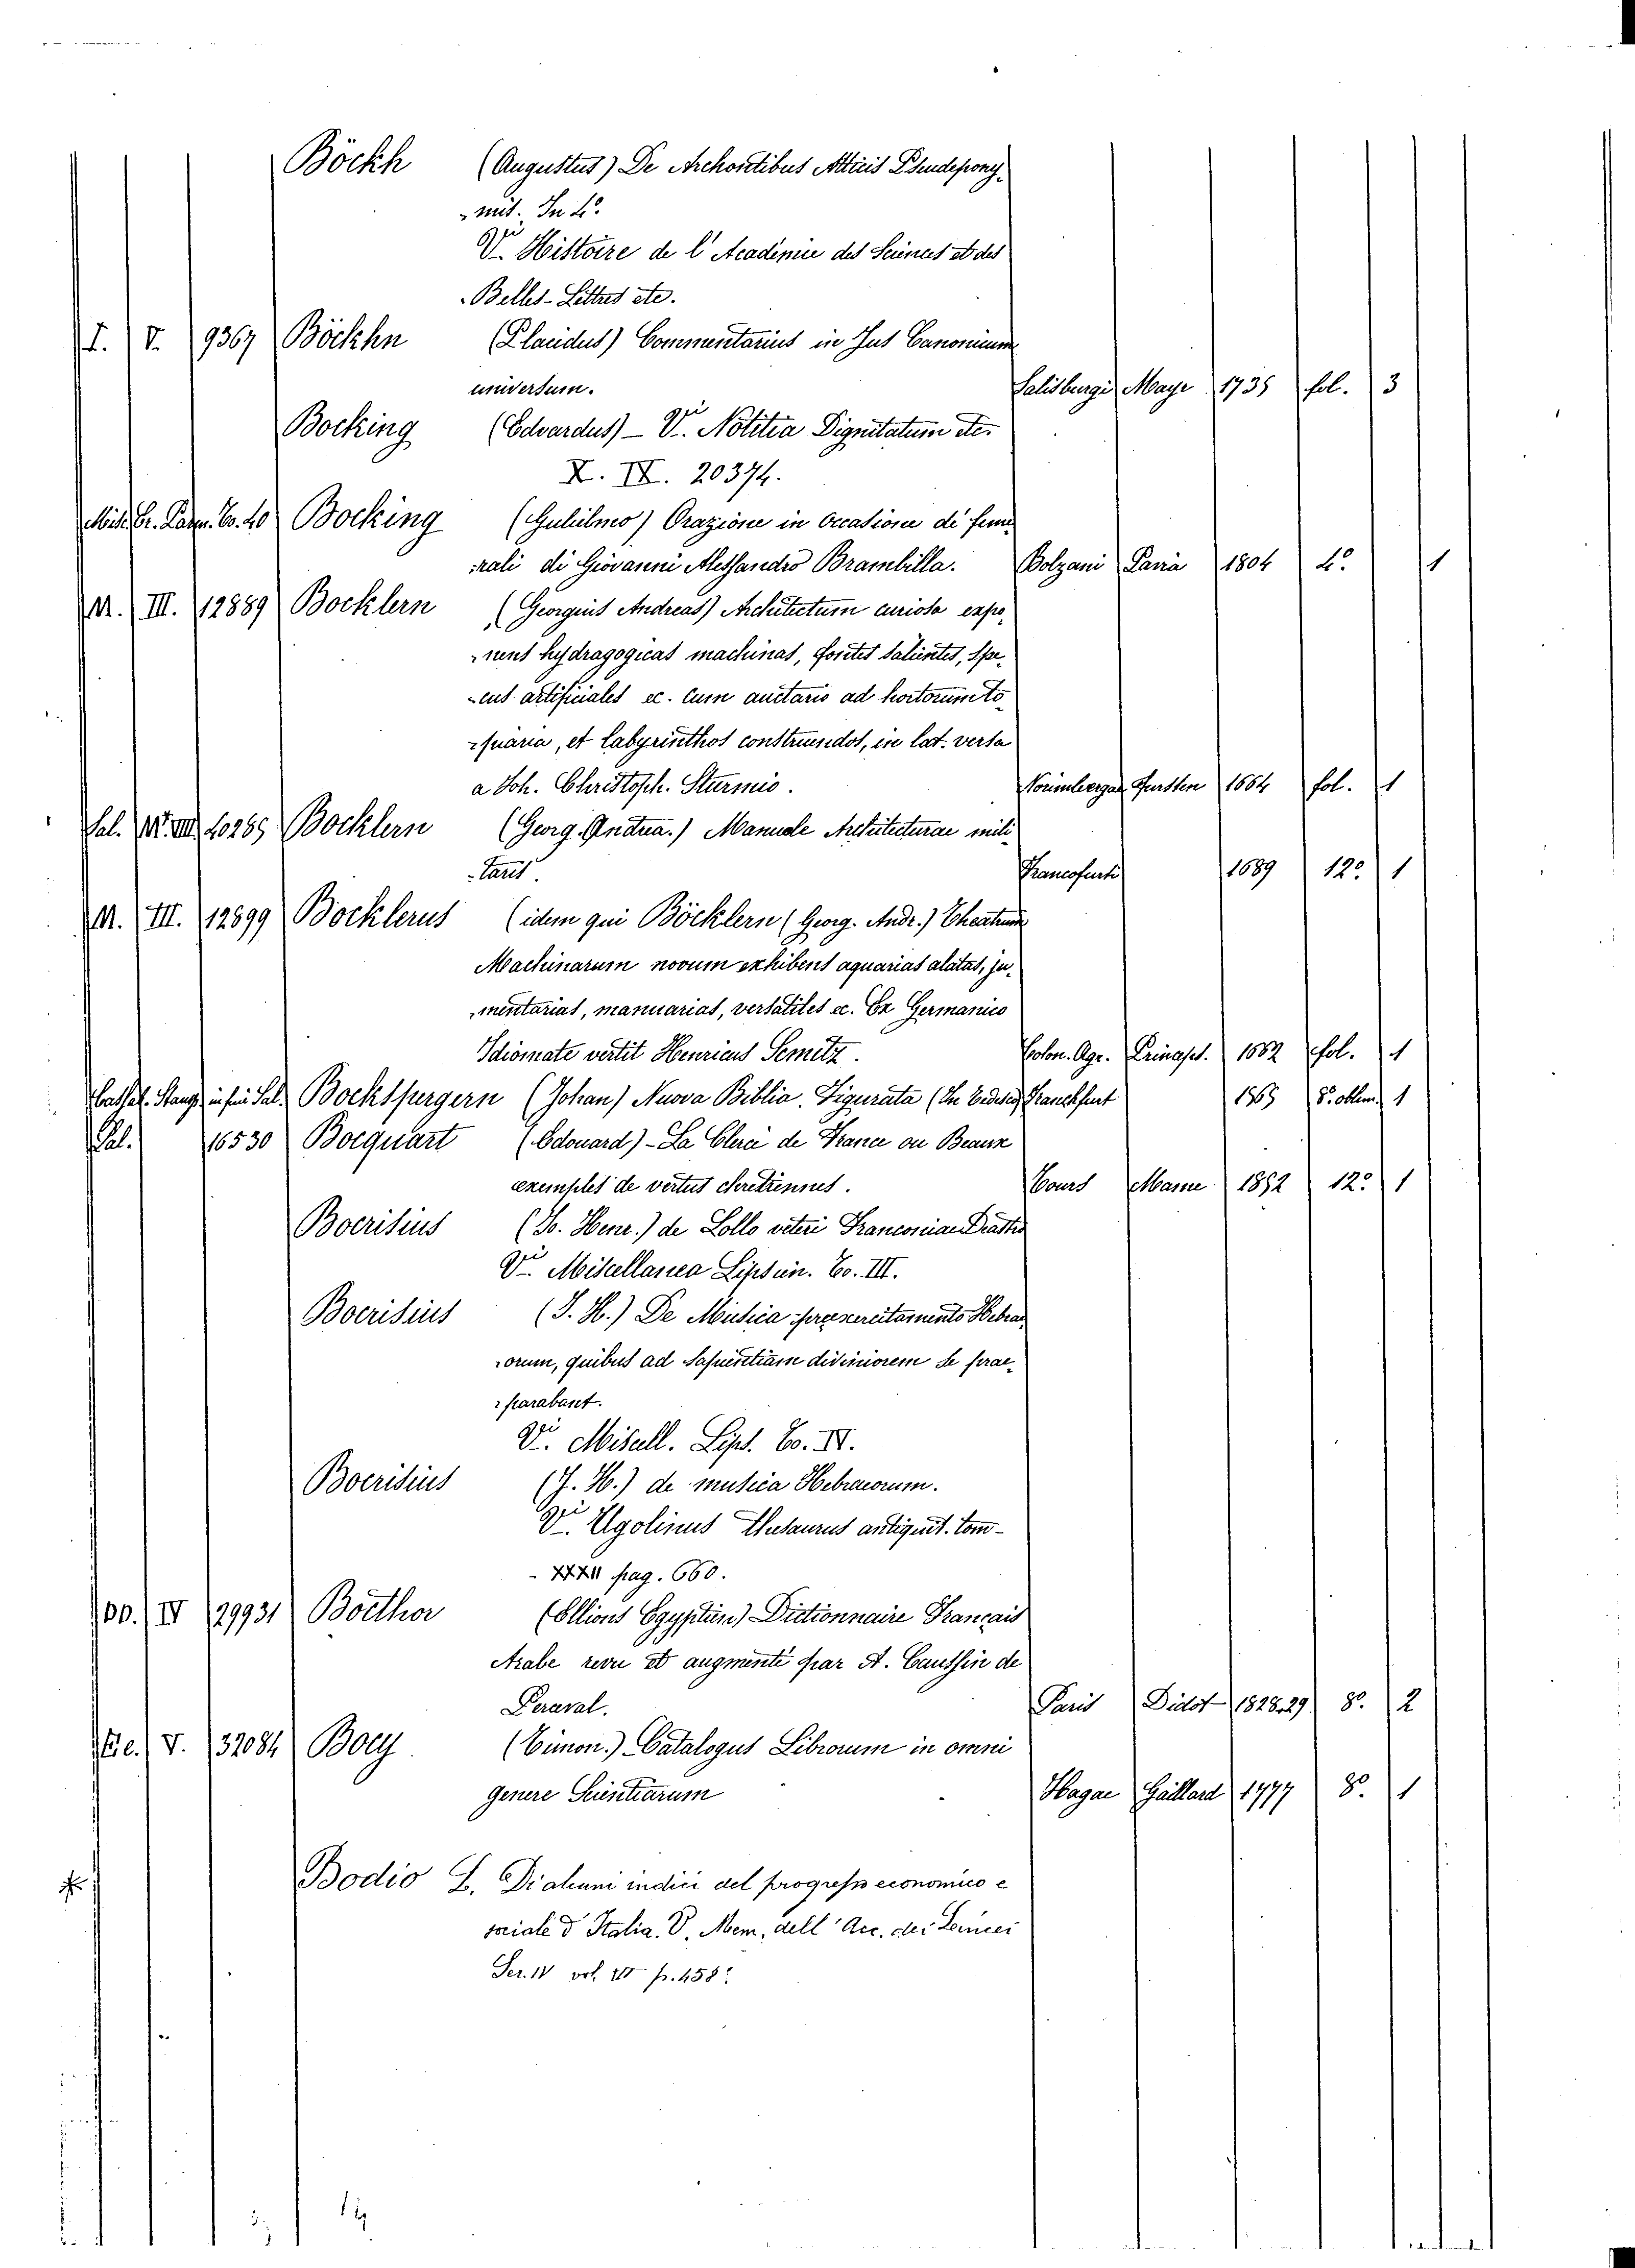 Böckh (Augustus) De Archontibus Atticis Pseudepony-
-mis. In 4º.
Vi Histoire de l'Academie des Sciences et des
Belles-Lettres etc.
I. V. 9367 Böckhn (Placidus) Commentarius in Jus Canonicum
universum. Salisburgi Mayr 1735 fol. 3
Bocking (Edvardus) - Vi. Notitia Dignitatum etc.
X. IX. 20374.
Misc. Gr. Parm. To. 40 Bocking (Gulielmo) Orazione in occasione di fune
rali di Giovanni Alessandro Brambilla. Bolzani Pavia 1804 4º. 1
M. III. 12889 Bocklern (Georgius Andreas) Architectum curiosa expo-
-nens hydragogicas machinas, fontes salientes, spe-
-cus artificiales ec. cum auctario ad hortorum to-
-piaria, et labyrinthos construendos, in lat. versa
a Joh. Christoph. Sturmio. Norimbergae Fursten 1664 fol. 1
Sal. M. VIII 10265 Bocklern (Georg. Andrea.) Manuale Architecturae mili
-taris. Francofurti 1689 12º. 1
M. III. 12899 Bocklerus (idem qui Böcklern (Georg. Andr.) Theatrum
Machinarum novum exhibens aquarias alatas, ju-
-mentarias, manuarias, versatiles ec. Ex Germanico
Idiomate vertit Henricus Semitz. Colon. Agr. Prinapst. 1662 fol. 1
Bockspergern (Johan) Nuova Biblia. Figurata (In Tedesco) Franckfurt 1565 8º. oblun. 1
Sal. 16530 Bocquart (Edouard) - La Clerci de France ou Beaux
exemples de vertus chretiennes. Tours Mame 1852 12º 1
Boerisius (Jo. Henr.) de Lollo veteri Franconiae
Vi. Miscellanea Lipsien. To. III.
Boerisius (J. H.) De Musica praeexercitamento Hebrae
-orum, quibus ad sapientiam diviniorem se prae-
-parabant.
Vi. Miscell. Lips. To. IV.
Boerisius (J. H.) de musica Hebraeorum.
Vi. Ugolinus Thesaurus antiquit. tom-
- XXXII pag. 660.
OO. IV 29931 Böcthor (Ellious Egyptien) Dictionnaire Français
Arabe revu et augmenté par A. Caussin de
Perceval. Paris Didot 1828.29 8º. 2
V. 32084 Bocy (Simon.) Catalogus Librorum in omni
genere Scientiarum Hagae Gaillard 1777 8º. 1
Bodio L. Di alcuni indici del progresso economico e
sociale d'Italia. V. Mem. dell'Acc. dei Lincei
Ser. IV vol. VII p. 458.